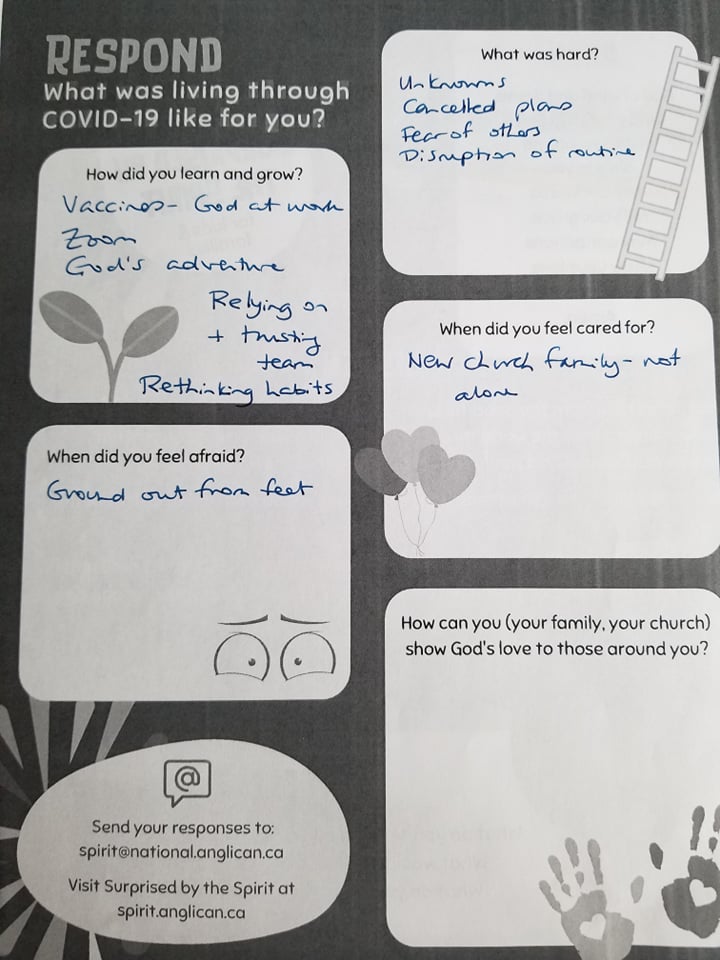 RESPOND
What was living through
COVID-19 like for you?
How did you learn and grow?
Vaccines - God at work
Zoom
God's adventure
Relying on
+ trusting
team
Rethinking habits
When did you feel afraid?
Ground out from feet
@
Send your responses to:
spirit@national.anglican.ca
Visit Surprised by the Spirit at
spirit.anglican.ca
What was hard?
Unknowns
Cancelled plans
Fear of others
Disruption of routine
When did you feel cared for?
New church family - not
alone
How can you (your family, your church)
show God's love to those around you?